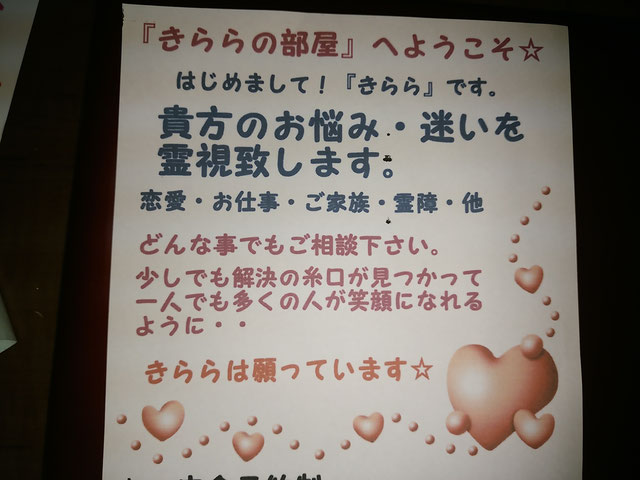 『きららの部屋』へようこそ☆
はじめまして!『きらら』です。
貴方のお悩み・迷いを
霊視致します。
恋愛・お仕事・ご家族・霊障・他
どんな事でもご相談下さい。
少しでも解決の糸口が見つかって
一人でも多くの人が笑顔になれる
ように・・
きららは願っています☆